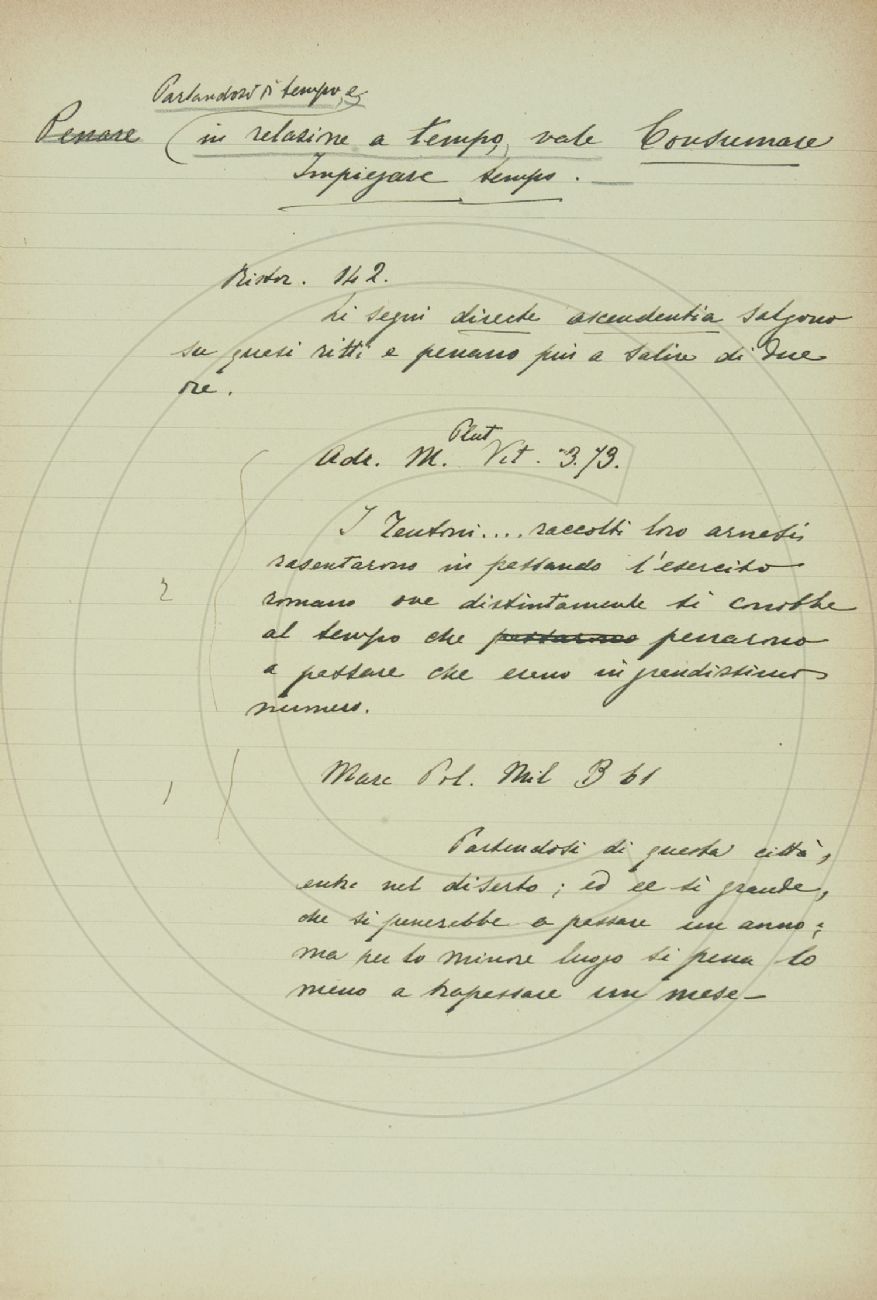 Parlandosi di tempo, e
Penare in relazione a tempo, vale Consumare
Impiegare tempo.
Ristor. 142.
Li segni directe ascendentia salgono
su quesi ritti e penano più a salire di due
ore.
Adr. M. Plut Vit. 3.73.
I Teutoni.... raccolti loro arnesi
rasentarono in passando l'esercito
romano ove distintamente si conobbe
al tempo che passarono penarono
a passare che erano in grandissimo
numero.
2
Marc Pol. Mil B 61
1
Partendosi di questa città,
entra nel diserto; ed ee sì grande,
che si penerebbe a passare un anno;
ma per lo minore luogo si pena lo
meno a trapassare un mese—